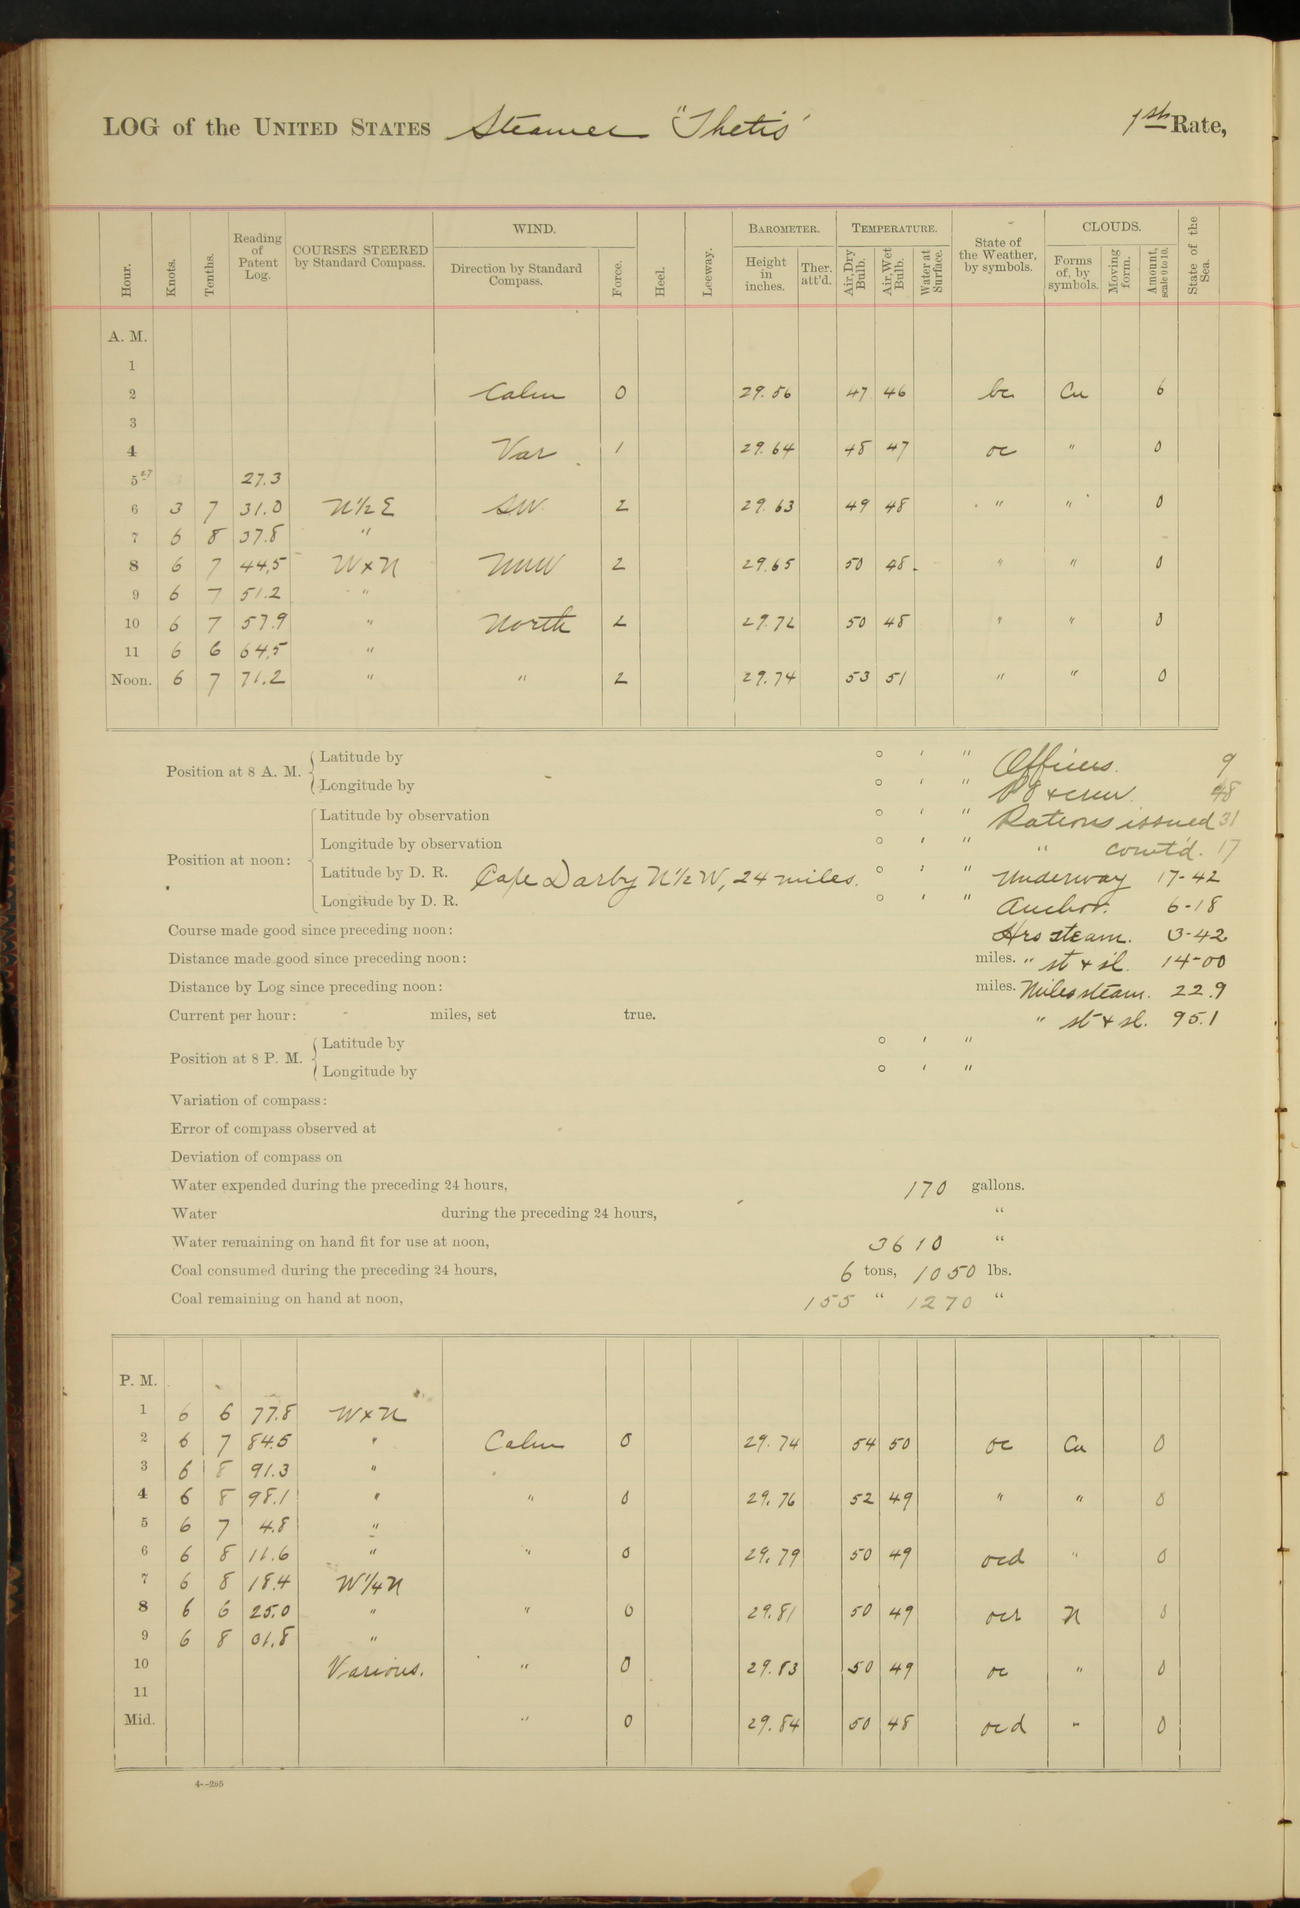 LOG of the UNITED STATES Steamer "Thetis" 1st Rate,
Hour. Knots. Tenths. Reading of Patent Log. COURSES STEERED by Standard Compass. WIND. Direction by Standard Compass. Force. Heel. Leeway. BAROMETER. Height in inches. Ther. att'd. TEMPERATURE. Air, Dry Bulb. Air, Wet Bulb. Water at Surface. State of the Weather, by symbols. CLOUDS. Forms of, by symbols. Moving form. Amount, scale 0 to 10. State of the Sea.
A. M.
1
2 Calm 0 29.56 47 46 bc Cu 6
3
4 Var 1 29.64 48 47 oc " 0
5 27 27.3
6 3 7 31.0 N½E SW 2 29.63 49 48 " " 0
7 6 8 37.8 "
8 6 7 44.5 WxN NNW 2 29.65 50 48 " " 0
9 6 7 51.2 "
10 6 7 57.9 " North 2 29.72 50 48 " " 0
11 6 6 64.5 "
Noon. 6 7 71.2 " " 2 29.74 53 51 " " 0
Position at 8 A. M. Latitude by ° ' " Officers. 9
Longitude by ° ' " PO & crew 48
Position at noon: Latitude by observation ° ' " Rations issued 31
Longitude by observation ° ' " " comt'd. 17
Latitude by D. R. Cape Darby N½W, 24 miles. ° ' " Underway 17-42
Longitude by D. R. ° ' " Anchor. 6-18
Course made good since preceding noon: Hrs steam. 3-42
Distance made good since preceding noon: miles. " st & sl. 14-00
Distance by Log since preceding noon: miles. Miles steam. 22.9
Current per hour: miles, set true. " st & sl. 95.1
Position at 8 P. M. Latitude by ° ' "
Longitude by ° ' "
Variation of compass:
Error of compass observed at
Deviation of compass on
Water expended during the preceding 24 hours, 170 gallons.
Water during the preceding 24 hours, "
Water remaining on hand fit for use at noon, 3610 "
Coal consumed during the preceding 24 hours, 6 tons, 1050 lbs.
Coal remaining on hand at noon, 155 " 1270 "
P. M.
1 6 6 77.8 WxN
2 6 7 84.5 " Calm 0 29.74 54 50 oc Cu 0
3 6 8 91.3 "
4 6 8 98.1 " " 0 29.76 52 49 " " 0
5 6 7 4.8 "
6 6 8 11.6 " " 0 29.79 50 49 ocd " 0
7 6 8 18.4 W¼N
8 6 6 25.0 " " 0 29.81 50 49 ocr N 0
9 6 8 31.8 "
10 Various. " 0 29.83 50 49 oc " 0
11
Mid. " 0 29.84 50 48 ocd " 0
4--265